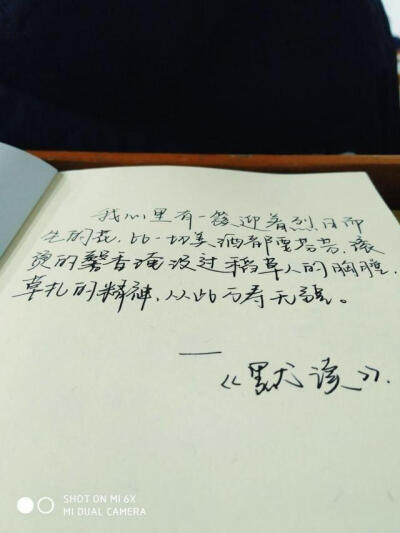 我心里有一簇迎着烈日而
生的花,比一切美酒都要芬芳,滚
烫的馨香淹没过稻草人的胸膛,
草扎的精神,从此万寿无疆。
——
《默读》.
SHOT ON MI 6X
MI DUAL CAMERA